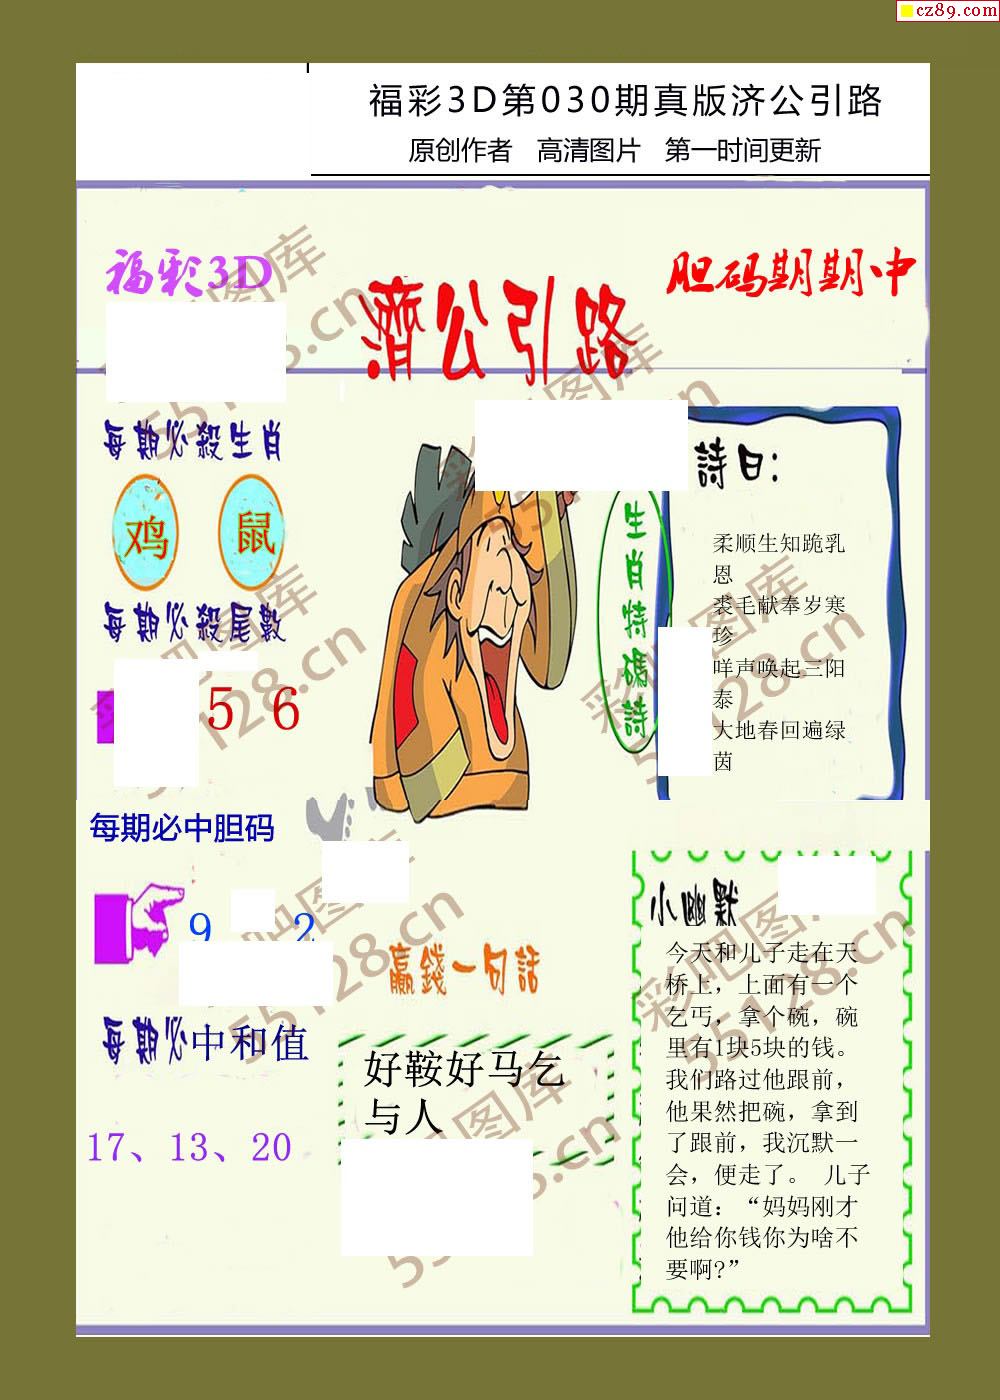 cz89.com
福彩3D第030期真版济公引路
原创作者 高清图片 第一时间更新
福彩3D
濟公引路
胆码期期中
每期必殺生肖
鸡 鼠
每期必殺尾數
5 6
每期必中胆码
9 2
每期必中和值
17、13、20
生肖特碼詩
詩曰：
柔顺生知跪乳
恩
裘毛献奉岁寒
珍
咩声唤起三阳
泰
大地春回遍绿
茵
贏錢一句話
好鞍好马乞
与人
小幽默
今天和儿子走在天
桥上，上面有一个
乞丐，拿个碗，碗
里有1块5块的钱。
我们路过他跟前，
他果然把碗，拿到
了跟前，我沉默一
会，便走了。 儿子
问道：“妈妈刚才
他给你钱你为啥不
要啊?”
彩吧图库
55128.cn